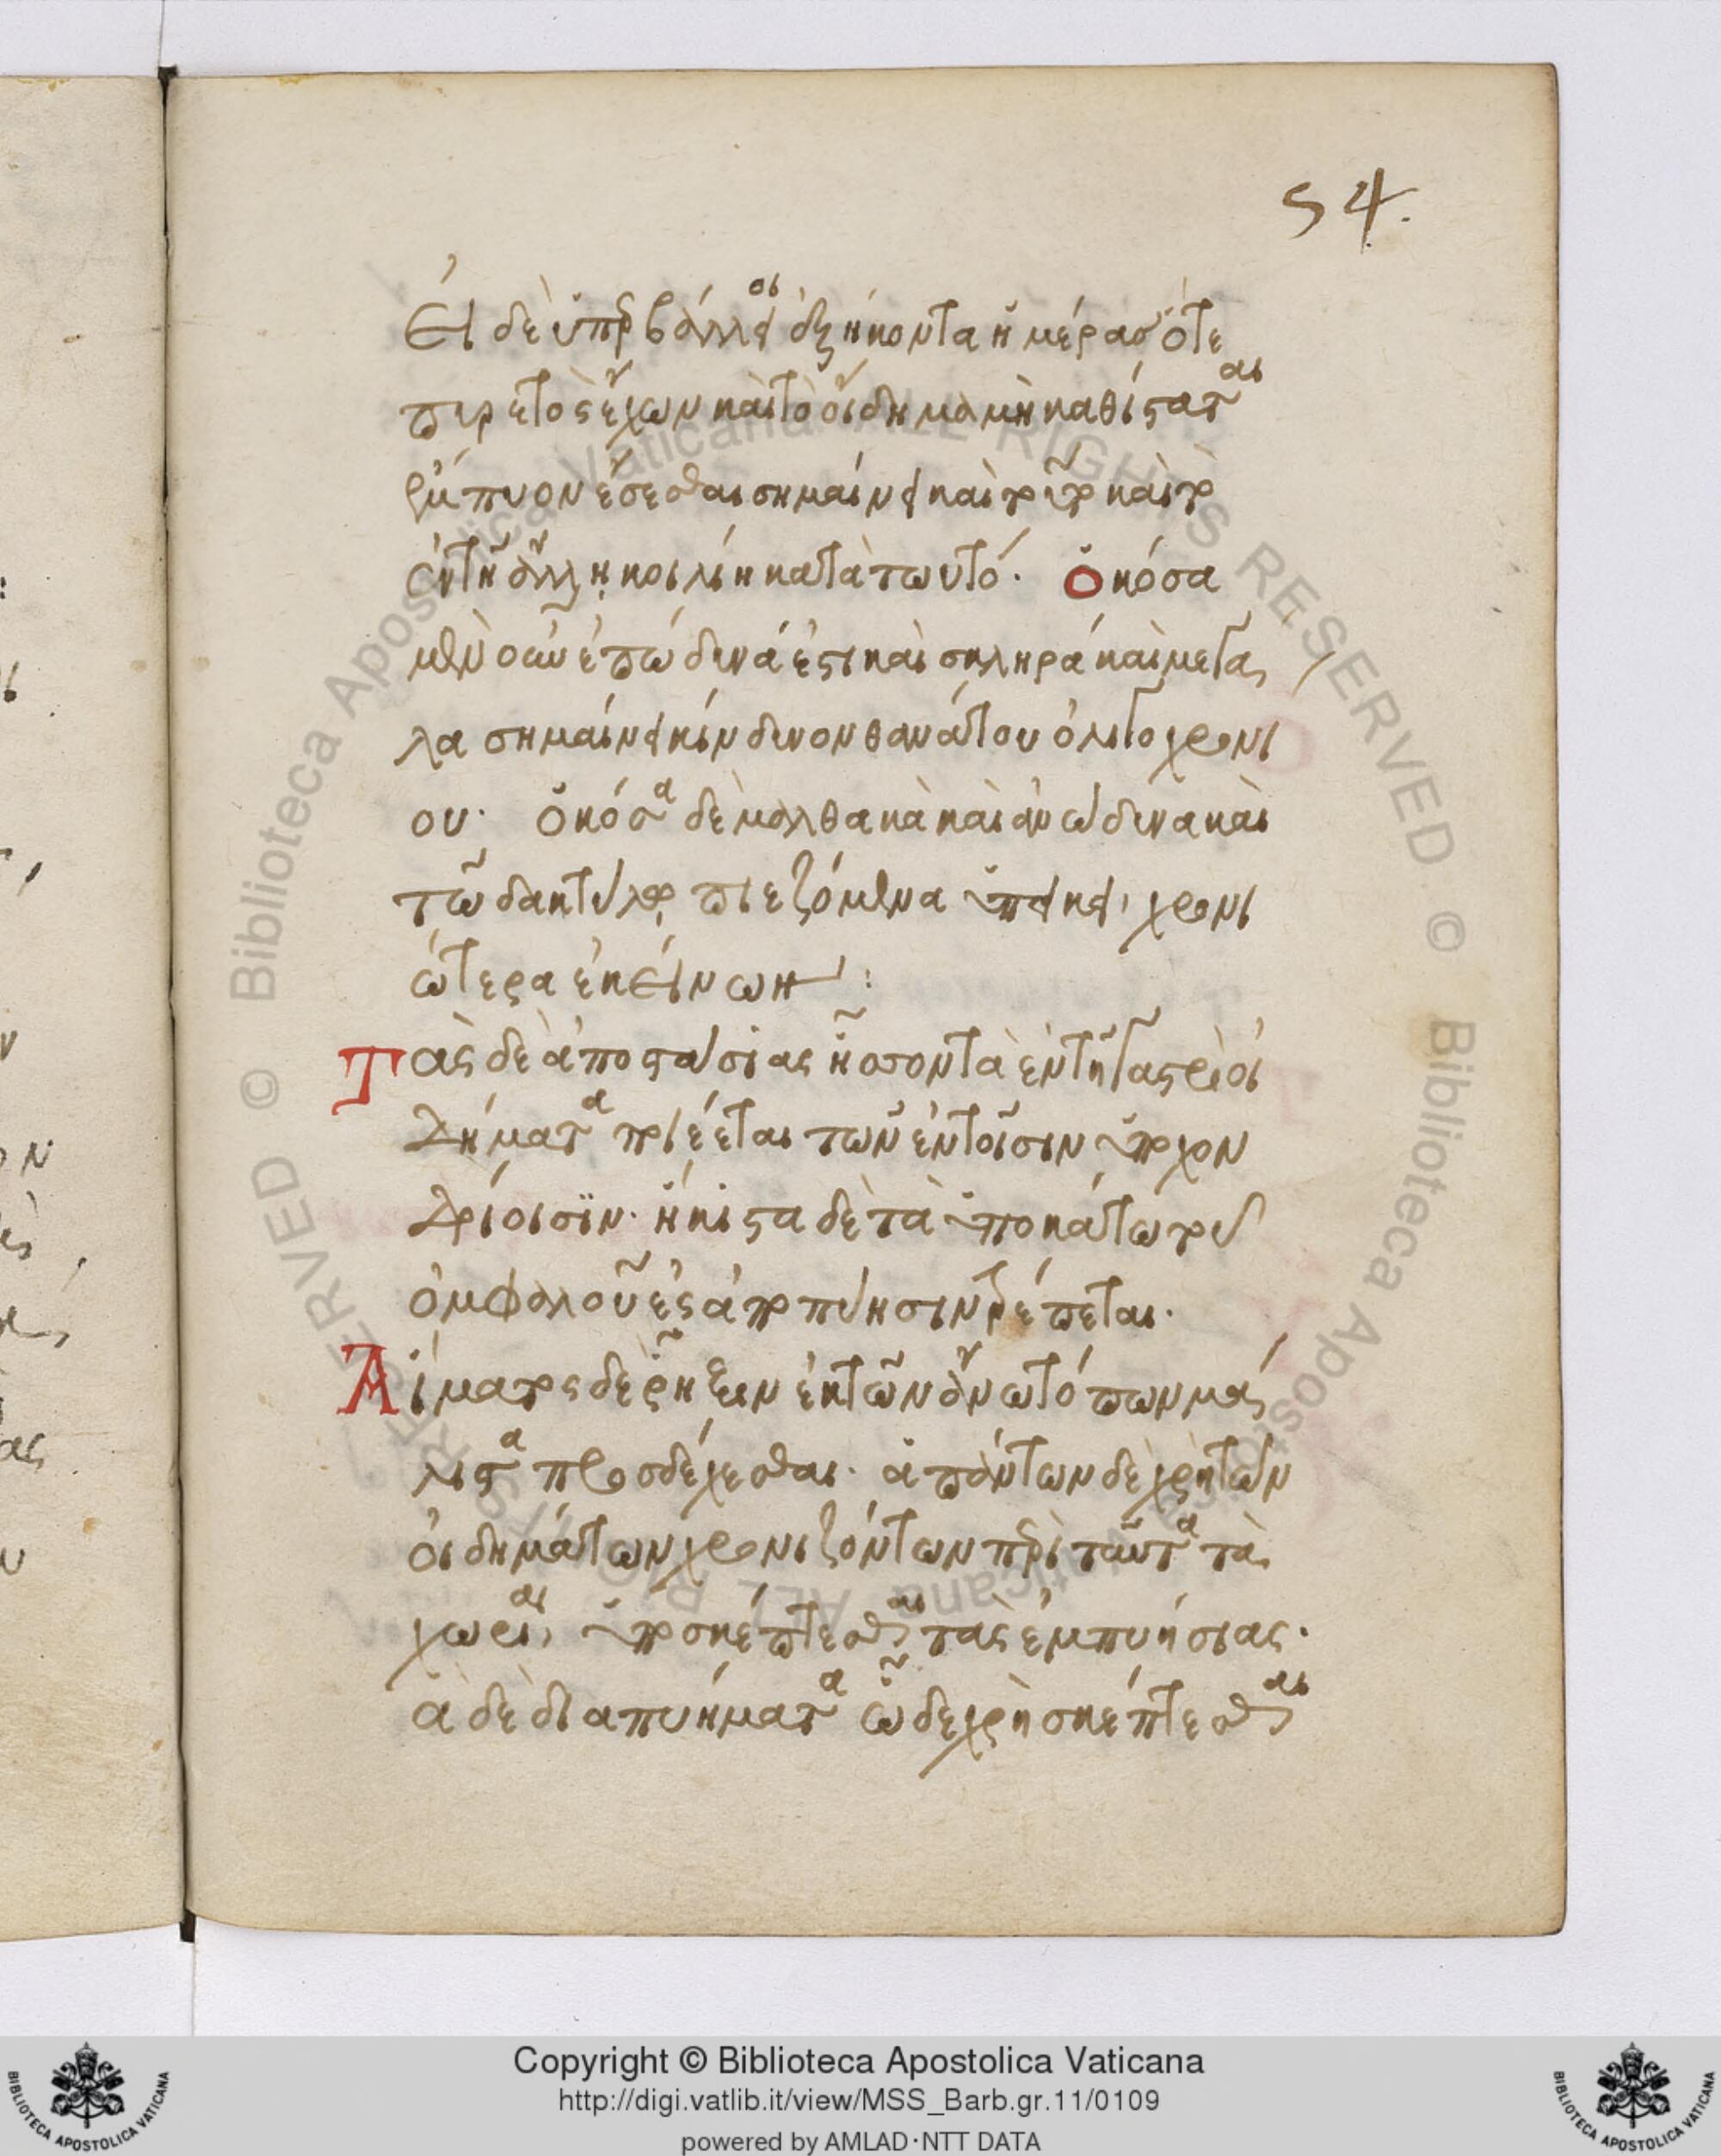 54.
Εἰ δὲ ὑπερβάλλοι ἑξήκοντα ἡμέρας ὅτε
πυρετὸς ἔχων καὶ τὸ οἴδημα μὴ καθίσταται
ἔμπυον ἔσεσθαι σημαίνει καὶ τοῦτο καὶ τὸ
ἐν τῇ ἄλλῃ κοιλίη κατὰ τωυτό. ὁκόσα
μὲν οὖν ἐπώδυνά ἐστι καὶ σκληρά καὶ μεγά
λα σημαίνει κίνδυνον θανάτου ὀλιγοχρονί
ου. ὁκόσα δὲ μαλθακὰ καὶ ἀνώδυνα καὶ
τῶ δακτύλῳ πιεζόμενα ὑπείκει, χρονι
ώτερα ἐκείνων :
Τὰς δὲ ἀποστασίας ἧσσον τὰ ἐν τῇ γαστρὶ οἰ
δήματα ποιέεται τῶν ἐν τοῖσιν ὑποχον
δρίοισιν. ἥκιστα δὲ τὰ ὑποκάτω τοῦ
ὀμφαλοῦ ἐς ἀποπύησιν τρέπεται.
Αἵματος δὲ ῥῆξιν ἐκ τῶν ἄνω τόπων μά
λιστα προσδέχεσθαι. ἁπάντων δὲ χρὴ τῶν
οἰδημάτων χρονιζόντων περὶ ταῦτα τὰ
χωρία, ὑποσκέπτεσθαι τὰς ἐμπυήσιας.
ἃ δὲ διαπυήματα ὧδε χρὴ σκέπτεσθαι
Copyright © Biblioteca Apostolica Vaticana
http://digi.vatlib.it/view/MSS_Barb.gr.11/0109
powered by AMLAD·NTT DATA